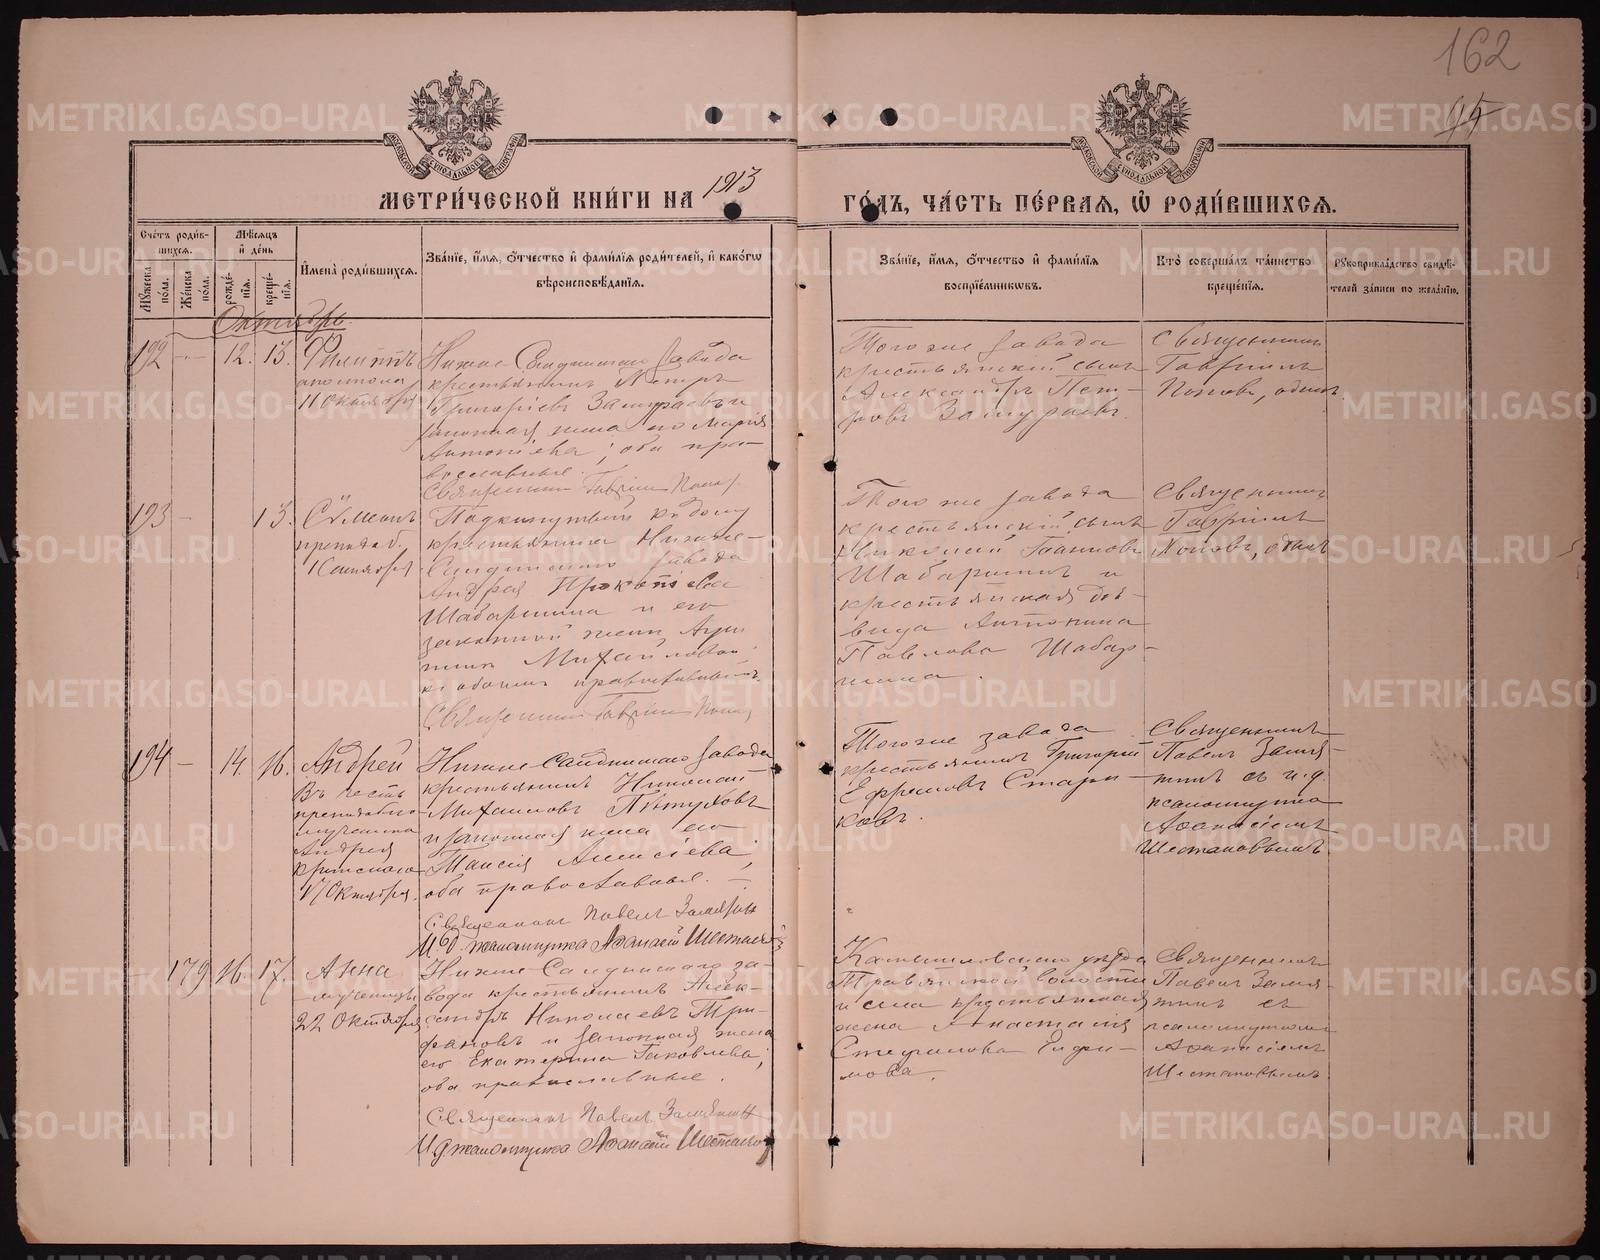 162
95
МЕТРИ́ЧЕСКОЙ КНИ́ГИ НА 1913 ГО́ДЪ, ЧА́СТЬ ПЕ́РВАѦ, Ѡ҆ РОДИ́ВШИХСѦ.
Сче́тъ роди́вшихсѧ.
Мꙋ́жеска по́ла.
Же́нска по́ла.
Мѣ́сѧцъ и҆ де́нь
рожде́нїѧ.
креще́нїѧ.
И҆мена̀ роди́вшихсѧ.
Зва́нїе, и҆́мѧ, ѻ҆́тчество и҆ фами́лїѧ роди́телей, и҆ како́гѡ
вѣроисповѣ́данїѧ.
Зва́нїе, и҆́мѧ, ѻ҆́тчество и҆ фами́лїѧ
воспрїе́мникѡвъ.
Кто̀ соверша́лъ та́инство
креще́нїѧ.
Рꙋкоприкла́дство свидѣ́-
телей за́писи по жела́нїю.
Октябрь.
192 - 12. 13.
Филиппъ
апостола
11 Октября
Нижне-Салдинскаго завода
крестьянинъ Петръ
Григоріевъ Замураевъ и
законная жена его Марія
Антоніева; оба пра-
вославные.
Священникъ Гавріилъ Поповъ
Того же завода
крестьянскій сынъ
Александръ Пет-
ровъ Замураевъ.
Священникъ
Гавріилъ
Поповъ, одинъ
193 - 13.
Сѵмеонъ
преподоб.
1 Сентября
Подкинутый къ дому
крестьянина Нижне-
Салдинскаго завода
Андрея Прокопіева
Шабаршина и его
законной жены
Михайловой
православныхъ.
Священникъ Гавріилъ Поповъ
Того же завода
крестьянскій сынъ
Николай Іоанновъ
Шабаршинъ и
крестьянская дѣ-
вица Антонина
Павлова Шабар-
шина.
Священникъ
Гавріилъ
Поповъ, одинъ
194 - 14. 16.
Андрей
Въ честь
преподобно
мученика
Андрея
критскаго
17 Октября.
Нижне-Салдинскаго завода
крестьянинъ Николай
Михаиловъ Пѣтуховъ
и законная жена его
Таисія Алексіева;
оба православные.
Священникъ Павелъ Замятинъ
И. д. псаломщика Аѳанасій Шестаковъ
Того же завода
крестьянинъ Григорій
Ефремовъ Стари-
ковъ.
Священникъ
Павелъ Замя-
тинъ съ и. д.
псаломщика
Аѳанасіемъ
Шестаковымъ
- 179 16. 17.
Анна
мученицы
22 Октября
Нижне-Салдинскаго за-
вода крестьянинъ Алек-
сандръ Николаевъ Три-
фановъ и законная жена
его Екатерина Іаковлева;
оба православные.
Священникъ Павелъ Замятинъ
И. д. псаломщика Аѳанасій Шестаковъ
Камышловскаго уѣзда
Травянской волости
и села крестьянская
жена Анастасія
Стефанова Ефи-
мова.
Священникъ
Павелъ Замя-
тинъ съ
псаломщикомъ
Аѳанасіемъ
Шестаковымъ
METRIKI.GASO-URAL.RU